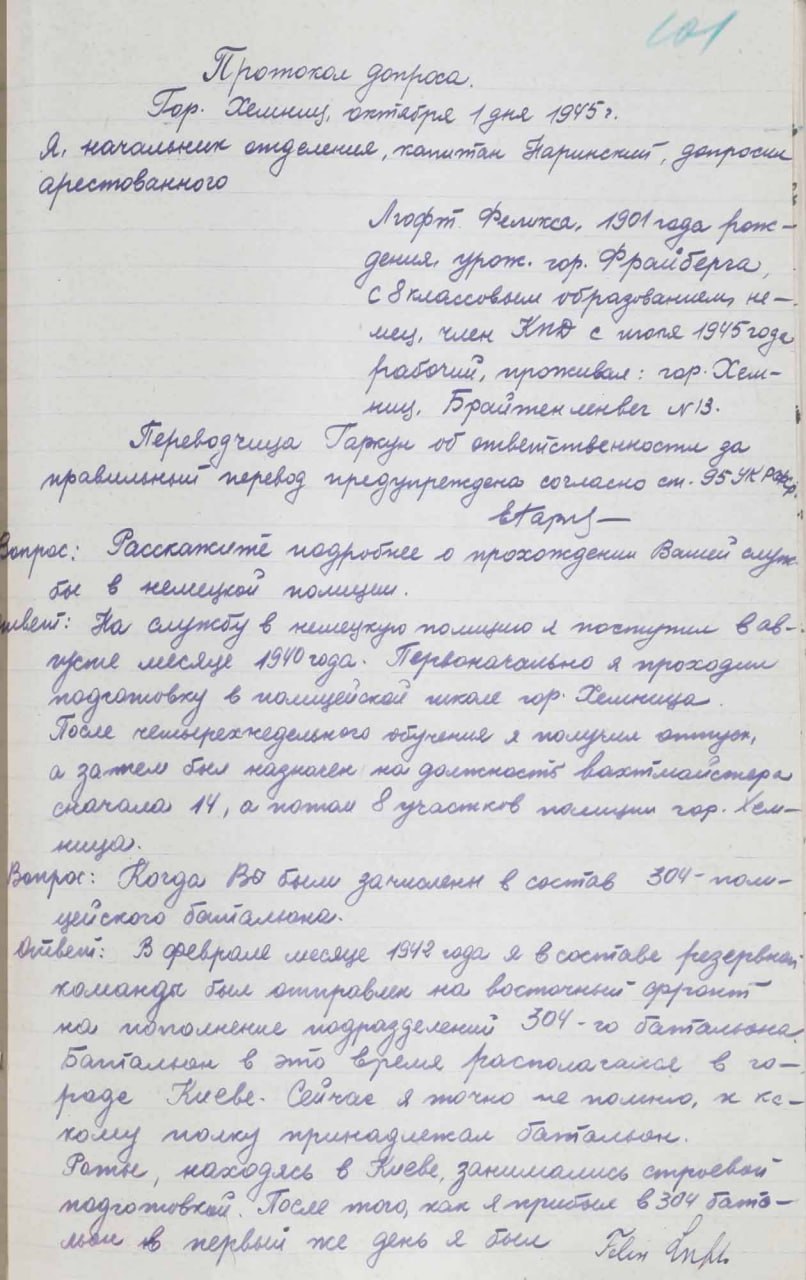 101
Протокол допроса.
Гор. Хемниц, октября 1 дня 1945 г.
Я, начальник отделения, капитан Наринский, допросил
арестованного
Лгофт Феликса, 1901 года рож-
дения, урож. гор. Фрайберга,
с 8 классовым образованием, не-
мец, член КПД с июля 1945 года
рабочий, проживал: гор. Хем-
ниц, Брайтенленвег N 13.
Переводчица Гаркун об ответственности за
правильный перевод предупреждена согласно ст. 95 УК РСФСР.
Вопрос: Расскажите подробнее о прохождении Вашей служ-
бы в немецкой полиции.
Ответ: На службу в немецкую полицию я поступил в ав-
густе месяце 1940 года. Первоначально я проходил
подготовку в полицейской школе гор. Хемница.
После четырехнедельного обучения я получил отпуск,
а затем был назначен на должность вахтмайстера
сначала 14, а потом 8 участков полиции гор. Хем-
ница.
Вопрос: Когда Вы были зачислены в состав 304-поли-
цейского батальона.
Ответ: В феврале месяце 1942 года я в составе резервной
команды был отправлен на восточный фронт
на пополнение подразделений 304-го батальона.
Батальон в это время располагался в го-
роде Киеве. Сейчас я точно не помню, к ка-
кому полку принадлежал батальон.
Роты, находясь в Киеве, занимались строевой
подготовкой. После того, как я прибыл в 304 бата-
льон в первый же день я был
Felix